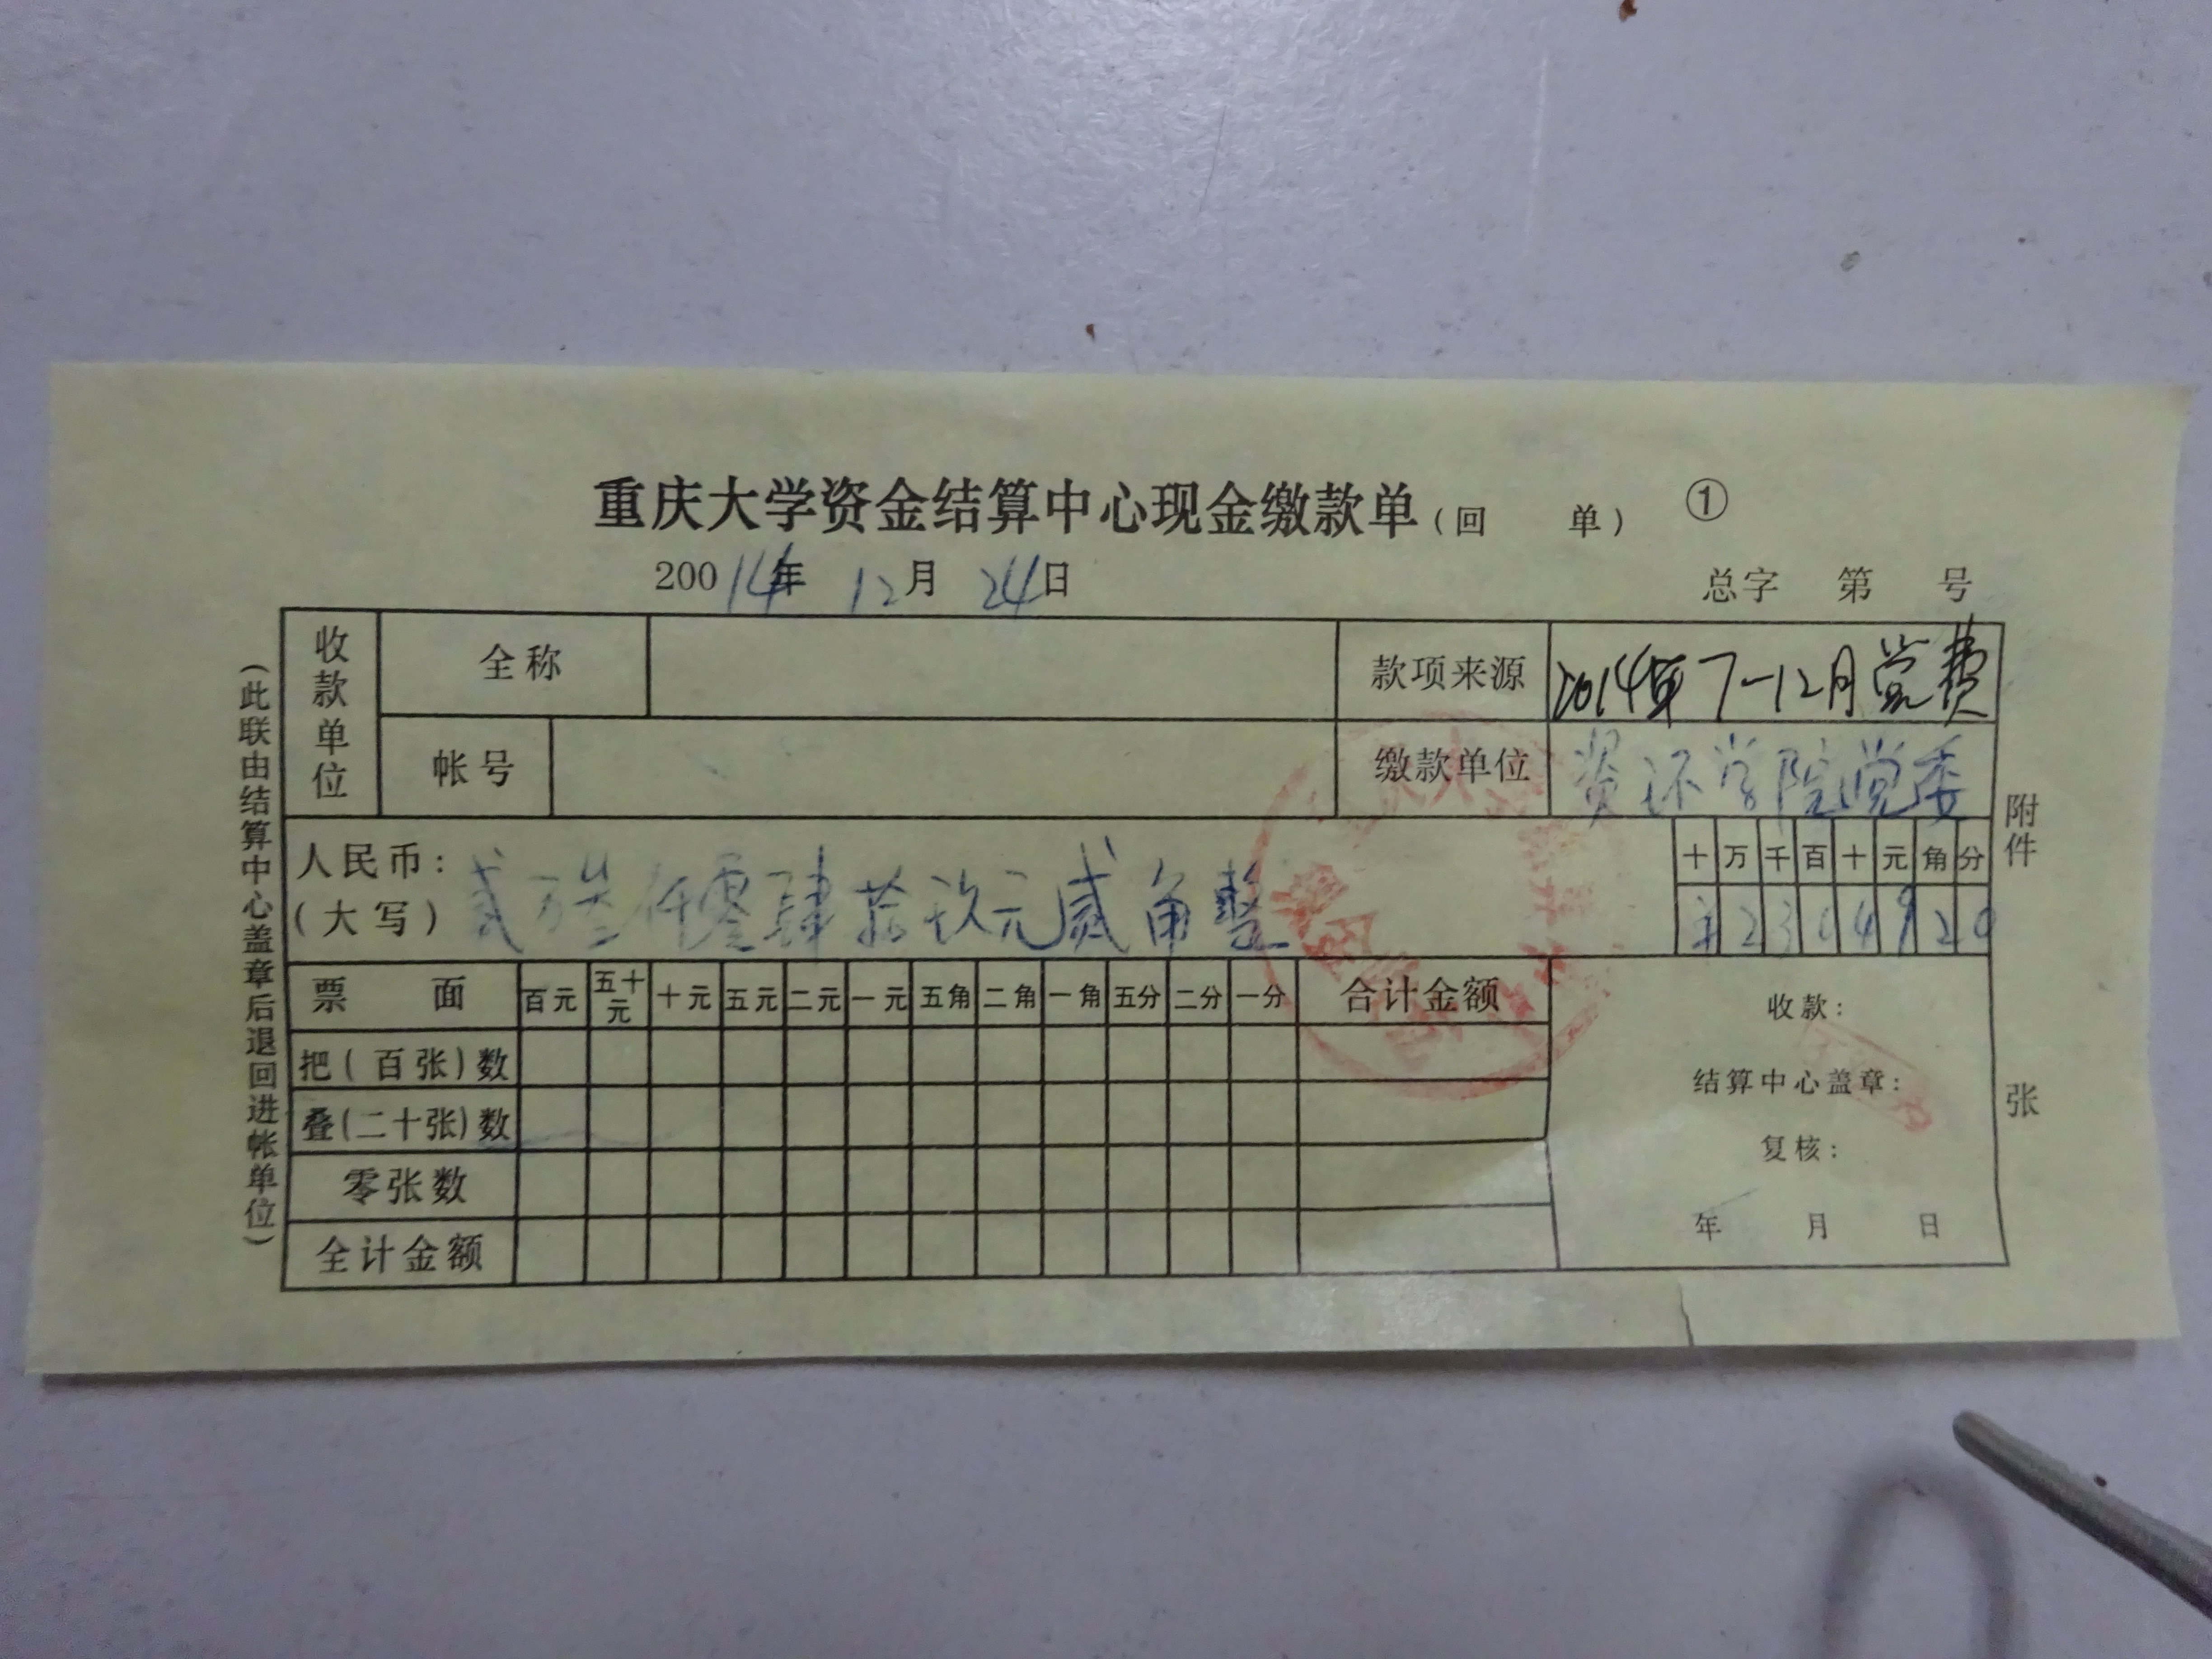 重庆大学资金结算中心现金缴款单（回 单） ①
200 14年 12月 24日 总字 第 号
（此联由结算中心盖章后退回进帐单位）
收款单位 全称 款项来源 2014年7-12月党费
帐号 缴款单位 资环学院党委
人民币：（大写） 贰万叁仟零肆拾玖元贰角整
十 万 千 百 十 元 角 分
¥ 2 3 0 4 9 2 0
票 面 百元 五十元 十元 五元 二元 一元 五角 二角 一角 五分 二分 一分 合计金额
把（百张）数
叠（二十张）数
零张数
全计金额
收款：
结算中心盖章：
复核：
年 月 日
附件
张